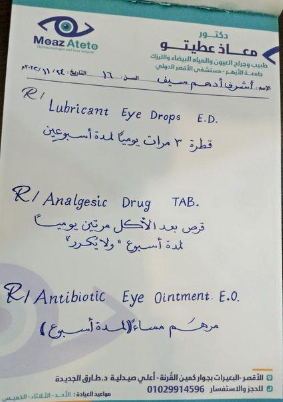 دكتور
معاذ عطيتو
Moaz Ateto
طبيب وجراح العيون والمياه البيضاء والليزك
جامعة الأزهر - مستشفى الأقصر الدولي
الاسم: أشرف أدهم سيف السن: ١٦ التاريخ:
R/ Lubricant Eye Drops E.D.
قطرة ٣ مرات يومياً لمدة أسبوعين
R/ Analgesic Drug TAB.
قرص بعد الأكل مرتين يومياً
لمدة أسبوع "ولا يكرر"
R/ Antibiotic Eye Ointment E.O.
مرهم مساءً (لمدة أسبوع)
الأقصر-البعيرات بجوار كمين القرنة- أعلي صيدلية د.طارق الجديدة
للحجز والاستفسار 01029914596
مواعيد العيادة: الأحد- الثلاثاء- الخميس